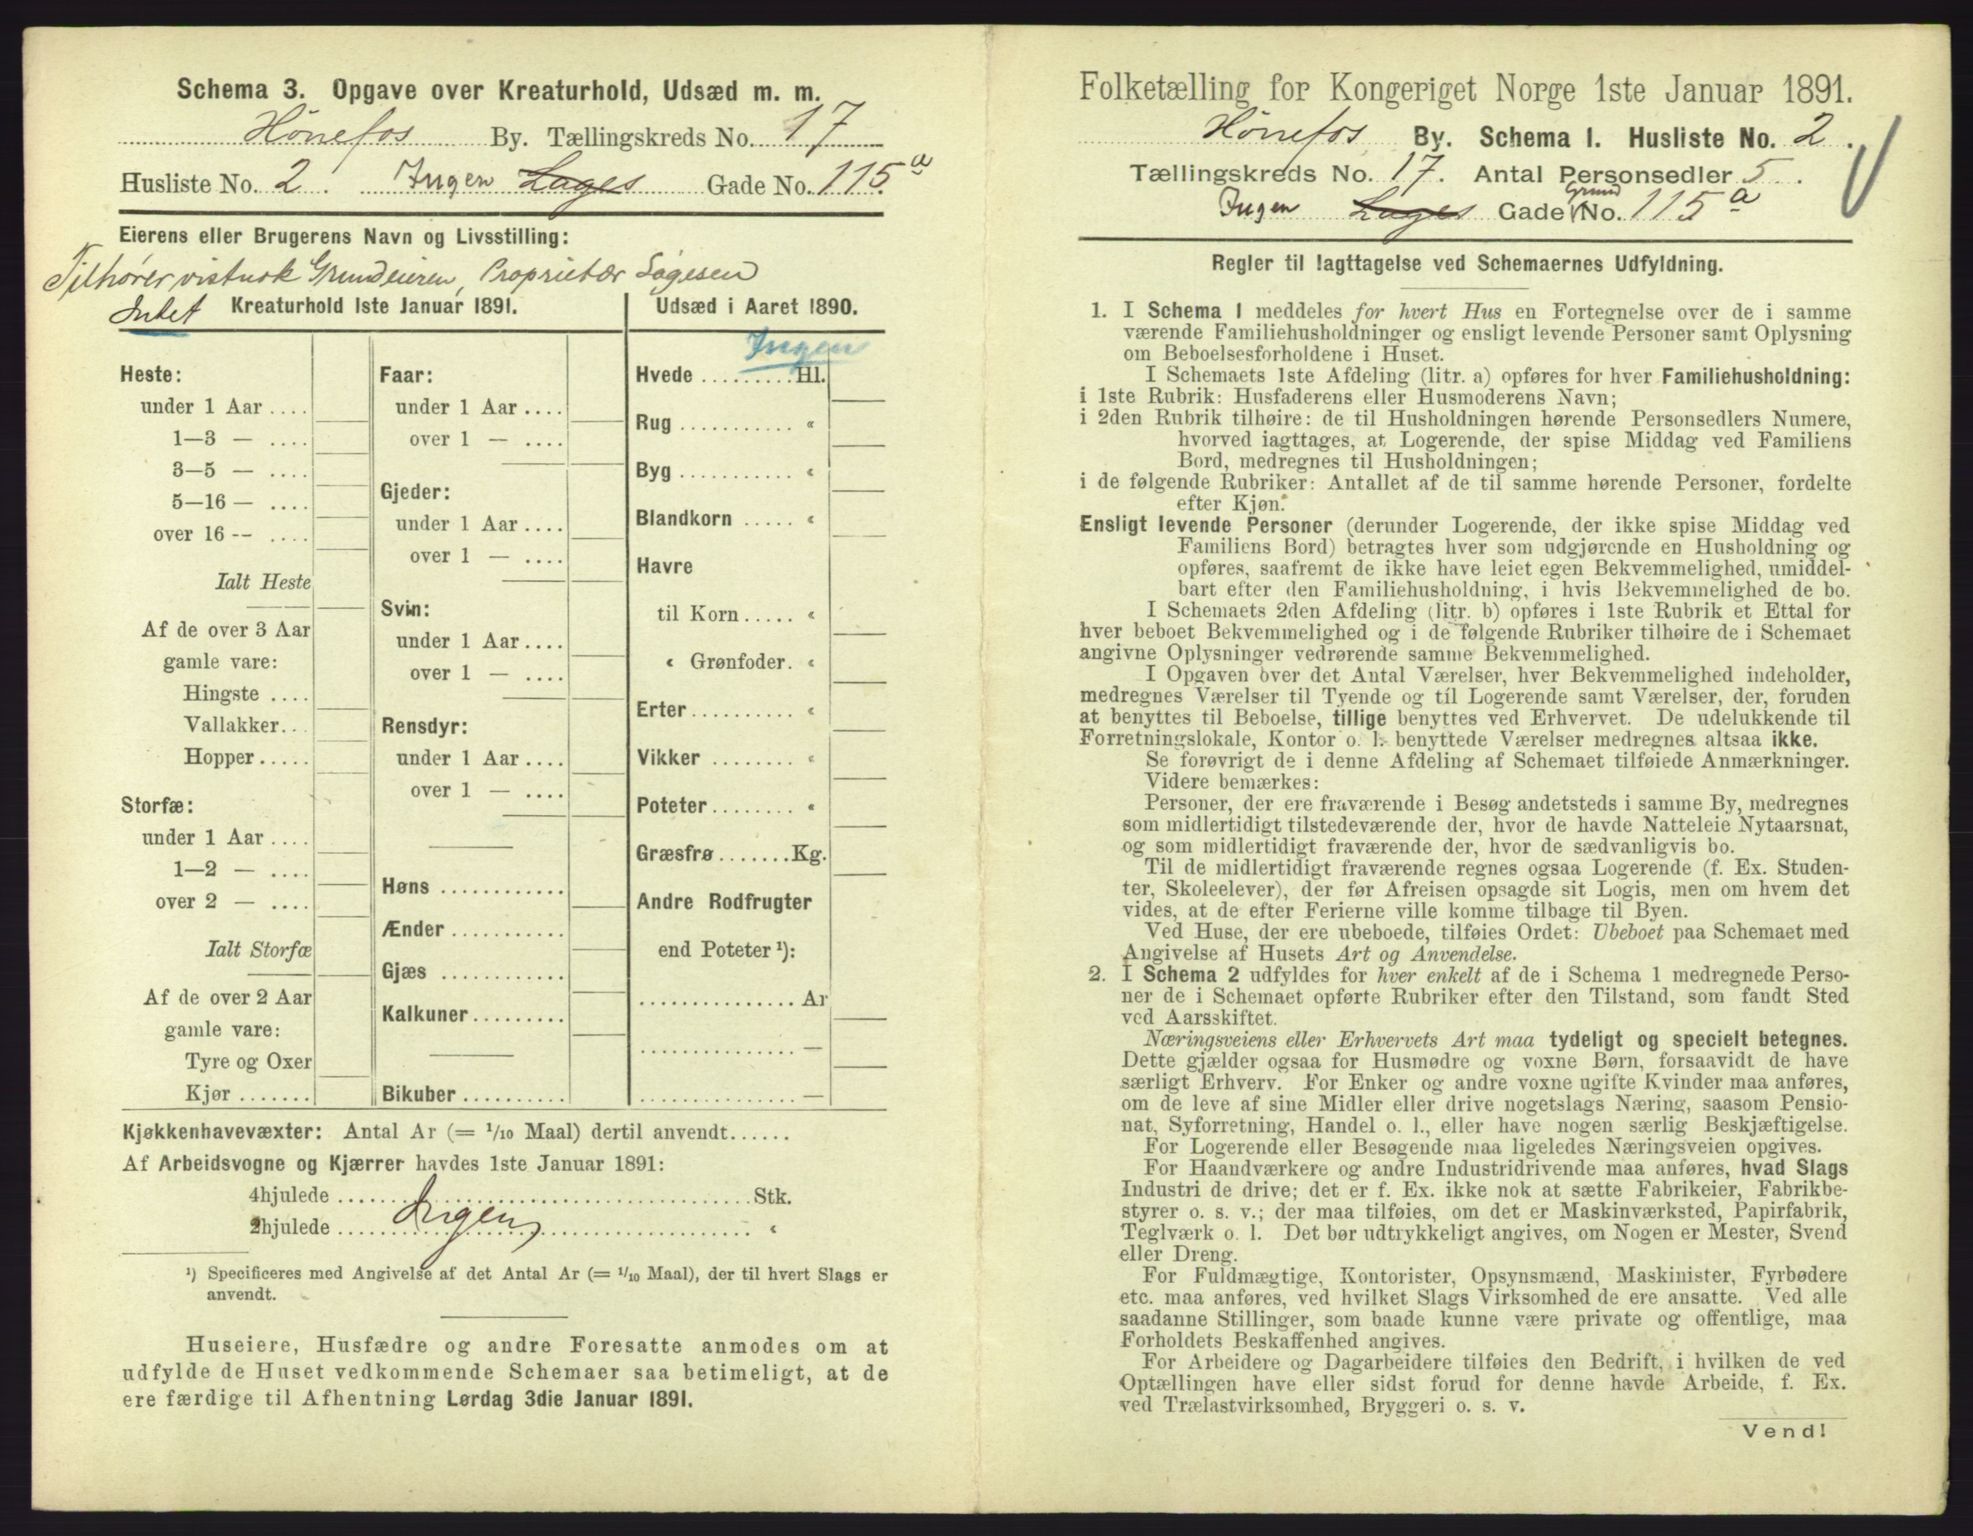 Schema 3. Opgave over Kreaturhold, Udsæd m. m.
Hønefos By. Tællingskreds No. 17
Husliste No. 2. Ingen Lages Gade No. 115a
Eierens eller Brugerens Navn og Livsstilling:
Tilhører vistnok Grundeieren, Proprietær Lagesen
Intet Kreaturhold 1ste Januar 1891.
Heste:
under 1 Aar ....
1—3 — ....
3—5 — ....
5—16 — ....
over 16 -- ....
Ialt Heste
Af de over 3 Aar
gamle vare:
Hingste ....
Vallakker...
Hopper.....
Storfæ:
under 1 Aar ....
1—2 — ....
over 2 — ....
Ialt Storfæ
Af de over 2 Aar
gamle vare:
Tyre og Oxer
Kjør .......
Faar:
under 1 Aar ....
over 1 — ....
Gjeder:
under 1 Aar ....
over 1 — ....
Svin:
under 1 Aar ....
over 1 — ....
Rensdyr:
under 1 Aar ....
over 1 — ....
Høns ............
Ænder ...........
Gjæs ............
Kalkuner.........
Bikuber ..........
Udsæd i Aaret 1890.
Ingen
Hvede .........Hl.
Rug .......... «
Byg .......... «
Blandkorn ..... «
Havre
til Korn..... «
« Grønfoder. «
Erter......... «
Vikker ....... «
Poteter....... «
Græsfrø.......Kg.
Andre Rodfrugter
end Poteter ¹):
...............Ar
............... —
............... —
Kjøkkenhavevæxter: Antal Ar (= 1/10 Maal) dertil anvendt......
Af Arbeidsvogne og Kjærrer havdes 1ste Januar 1891:
4hjulede ........ Stk.
2hjulede ........ «
Ingen
¹) Specificeres med Angivelse af det Antal Ar (= 1/10 Maal), der til hvert Slags er
anvendt.
Huseiere, Husfædre og andre Foresatte anmodes om at
udfylde de Huset vedkommende Schemaer saa betimeligt, at de
ere færdige til Afhentning Lørdag 3die Januar 1891.
Folketælling for Kongeriget Norge 1ste Januar 1891.
Hønefos By. Schema 1. Husliste No. 2.
Tællingskreds No. 17. Antal Personsedler 5.
Ingen Lages Gade Grund No. 115a
Regler til Iagttagelse ved Schemaernes Udfyldning.
1. I Schema 1 meddeles for hvert Hus en Fortegnelse over de i samme
værende Familiehusholdninger og ensligt levende Personer samt Oplysning
om Beboelsesforholdene i Huset.
I Schemaets 1ste Afdeling (litr. a) opføres for hver Familiehusholdning:
i 1ste Rubrik: Husfaderens eller Husmoderens Navn;
i 2den Rubrik tilhøire: de til Husholdningen hørende Personsedlers Numere,
hvorved iagttages, at Logerende, der spise Middag ved Familiens
Bord, medregnes til Husholdningen;
i de følgende Rubriker: Antallet af de til samme hørende Personer, fordelte
efter Kjøn.
Ensligt levende Personer (derunder Logerende, der ikke spise Middag ved
Familiens Bord) betragtes hver som udgjørende en Husholdning og
opføres, saafremt de ikke have leiet egen Bekvemmelighed, umiddel-
bart efter den Familiehusholdning, i hvis Bekvemmelighed de bo.
I Schemaets 2den Afdeling (litr. b) opføres i 1ste Rubrik et Ettal for
hver beboet Bekvemmelighed og i de følgende Rubriker tilhøire de i Schemaet
angivne Oplysninger vedrørende samme Bekvemmelighed.
I Opgaven over det Antal Værelser, hver Bekvemmelighed indeholder,
medregnes Værelser til Tyende og til Logerende samt Værelser, der, foruden
at benyttes til Beboelse, tillige benyttes ved Erhvervet. De udelukkende til
Forretningslokale, Kontor o. l. benyttede Værelser medregnes altsaa ikke.
Se forøvrigt de i denne Afdeling af Schemaet tilføiede Anmærkninger.
Videre bemærkes:
Personer, der ere fraværende i Besøg andetsteds i samme By, medregnes
som midlertidigt tilstedeværende der, hvor de havde Natteleie Nytaarsnat,
og som midlertidigt fraværende der, hvor de sædvanligvis bo.
Til de midlertidigt fraværende regnes ogsaa Logerende (f. Ex. Studen-
ter, Skoleelever), der før Afreisen opsagde sit Logis, men om hvem det
vides, at de efter Ferierne ville komme tilbage til Byen.
Ved Huse, der ere ubeboede, tilføies Ordet: Ubeboet paa Schemaet med
Angivelse af Husets Art og Anvendelse.
2. I Schema 2 udfyldes for hver enkelt af de i Schema 1 medregnede Perso-
ner de i Schemaet opførte Rubriker efter den Tilstand, som fandt Sted
ved Aarsskiftet.
Næringsveiens eller Erhvervets Art maa tydeligt og specielt betegnes.
Dette gjælder ogsaa for Husmødre og voxne Børn, forsaavidt de have
særligt Erhverv. For Enker og andre voxne ugifte Kvinder maa anføres,
om de leve af sine Midler eller drive nogetslags Næring, saasom Pensio-
nat, Syforretning, Handel o. l., eller have nogen særlig Beskjæftigelse.
For Logerende eller Besøgende maa ligeledes Næringsveien opgives.
For Haandværkere og andre Industridrivende maa anføres, hvad Slags
Industri de drive; det er f. Ex. ikke nok at sætte Fabrikeier, Fabrikbe-
styrer o. s. v.; der maa tilføies, om det er Maskinværksted, Papirfabrik,
Teglværk o. l. Det bør udtrykkeligt angives, om Nogen er Mester, Svend
eller Dreng.
For Fuldmægtige, Kontorister, Opsynsmænd, Maskinister, Fyrbødere
etc. maa anføres, ved hvilket Slags Virksomhed de ere ansatte. Ved alle
saadanne Stillinger, som baade kunne være private og offentlige, maa
Forholdets Beskaffenhed angives.
For Arbeidere og Dagarbeidere tilføies den Bedrift, i hvilken de ved
Optællingen have eller sidst forud for denne havde Arbeide, f. Ex.
ved Trælastvirksomhed, Bryggeri o. s. v.
Vend!